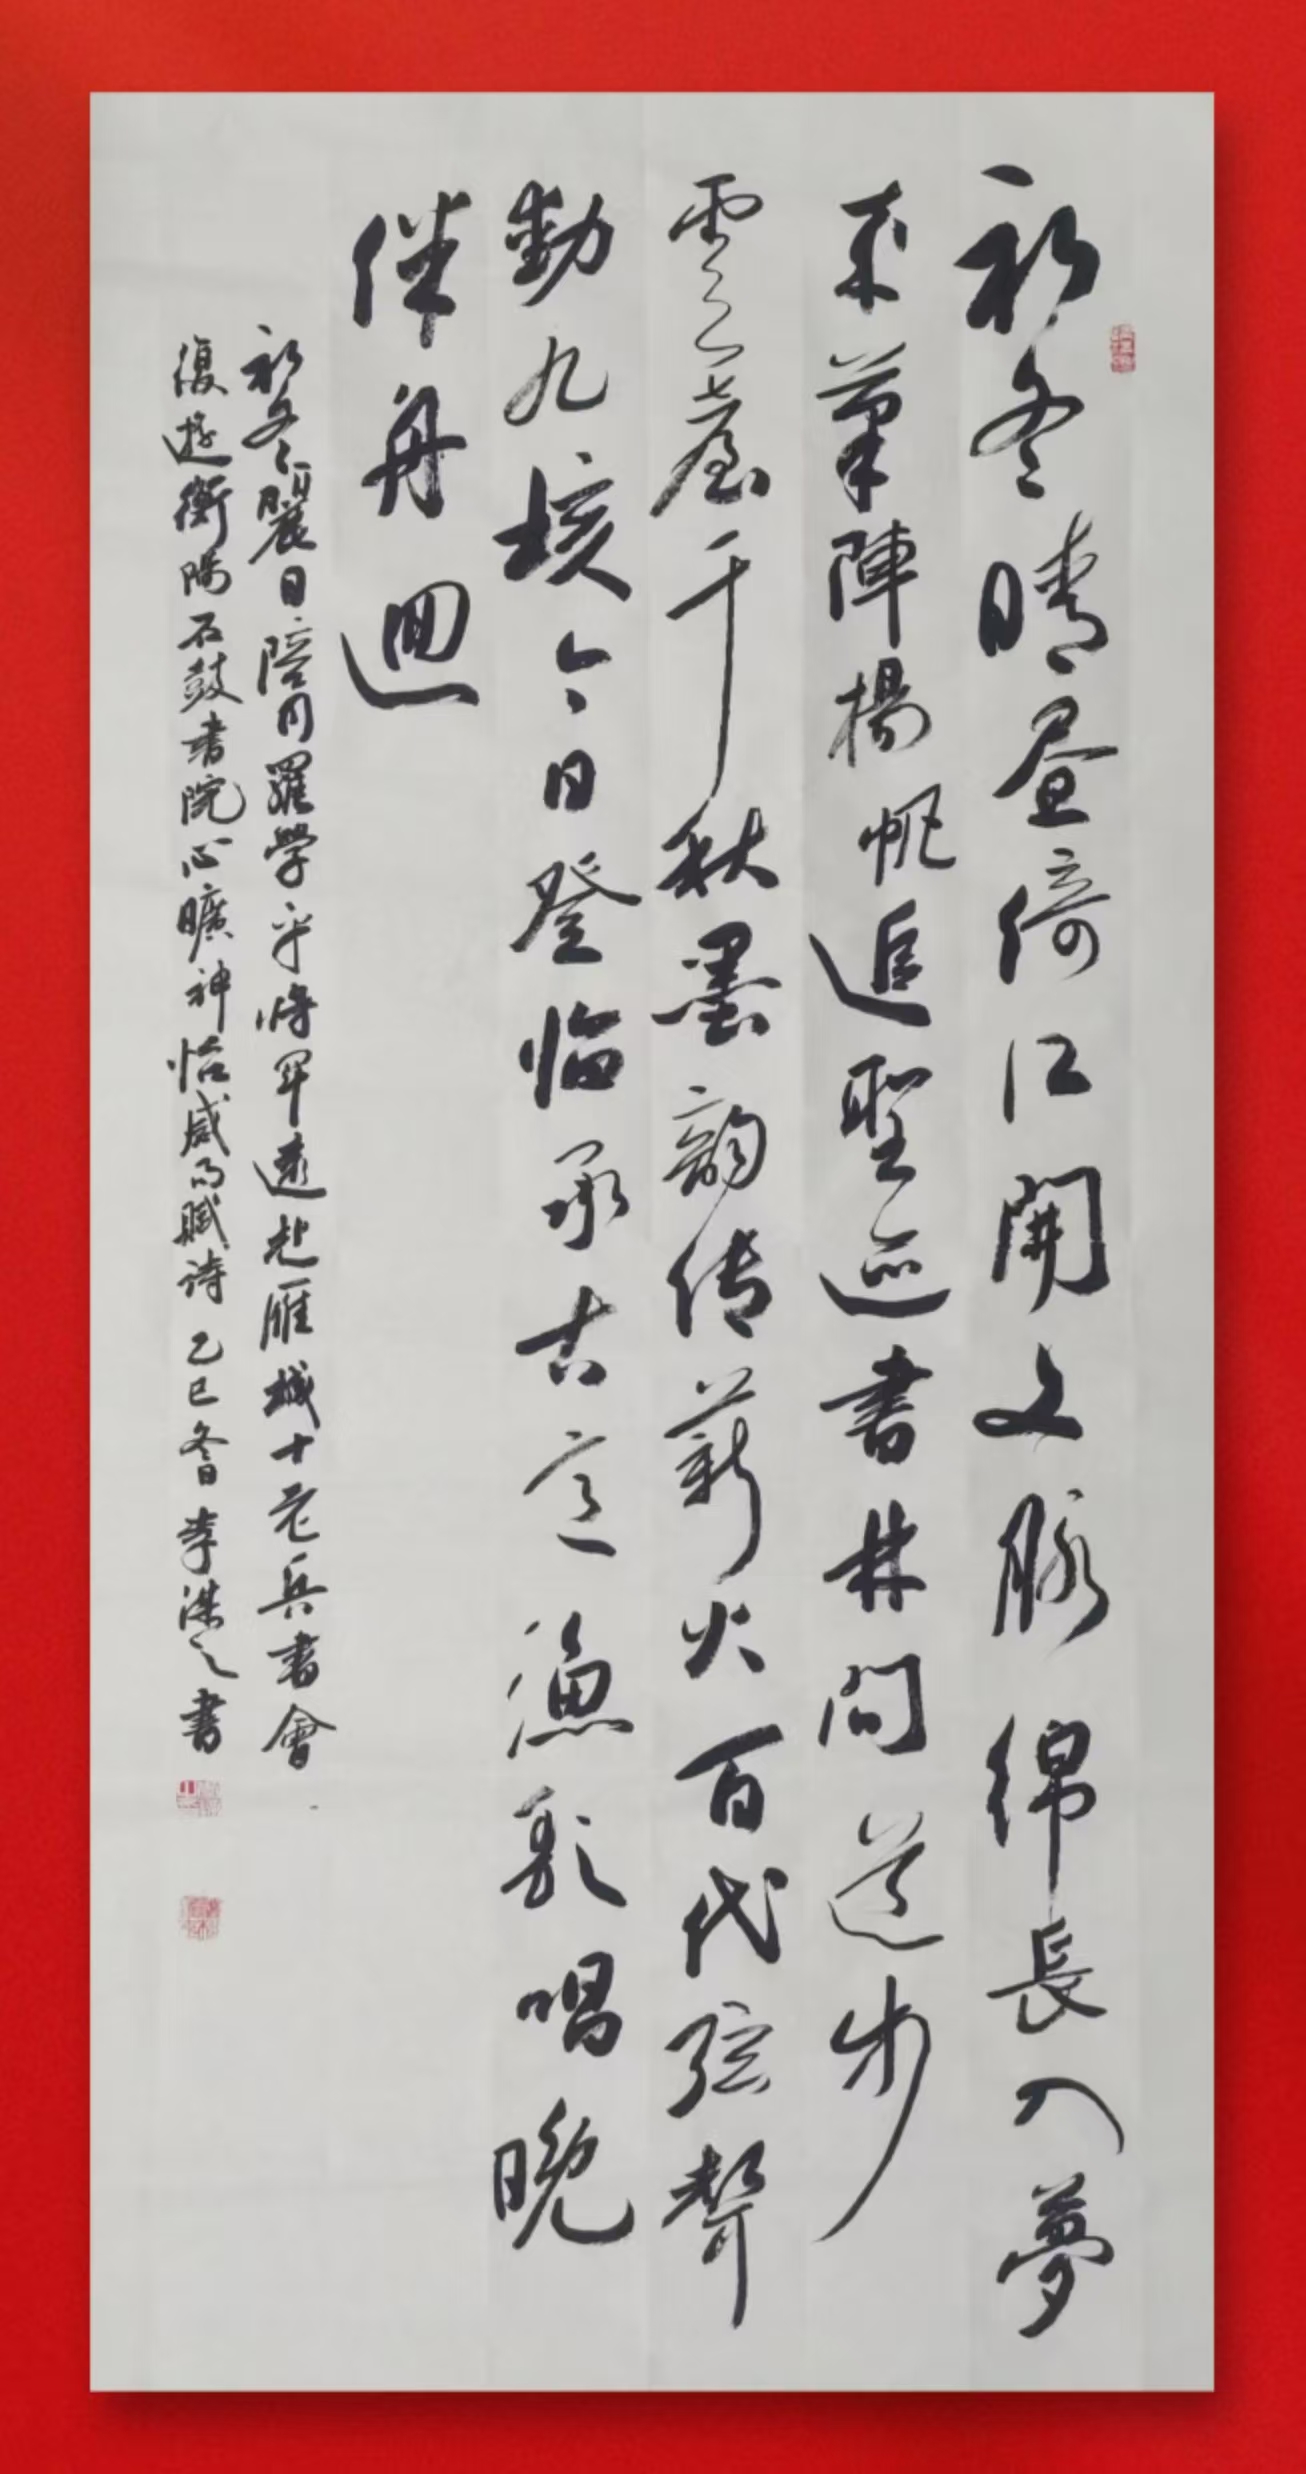 初冬晴昼倚江開文脉綿長入夢
来筆陣揚帆追聖迹書林問道步
雲臺千秋墨韵传薪火百代弦聲
動九垓今日登临承古意漁歌唱晚
伴舟迴
初冬麗日陪同羅學平将军遠赴雁城十老兵書會
復遊衡陽石鼓書院心曠神怡感而賦诗 乙巳冬日李洪之書